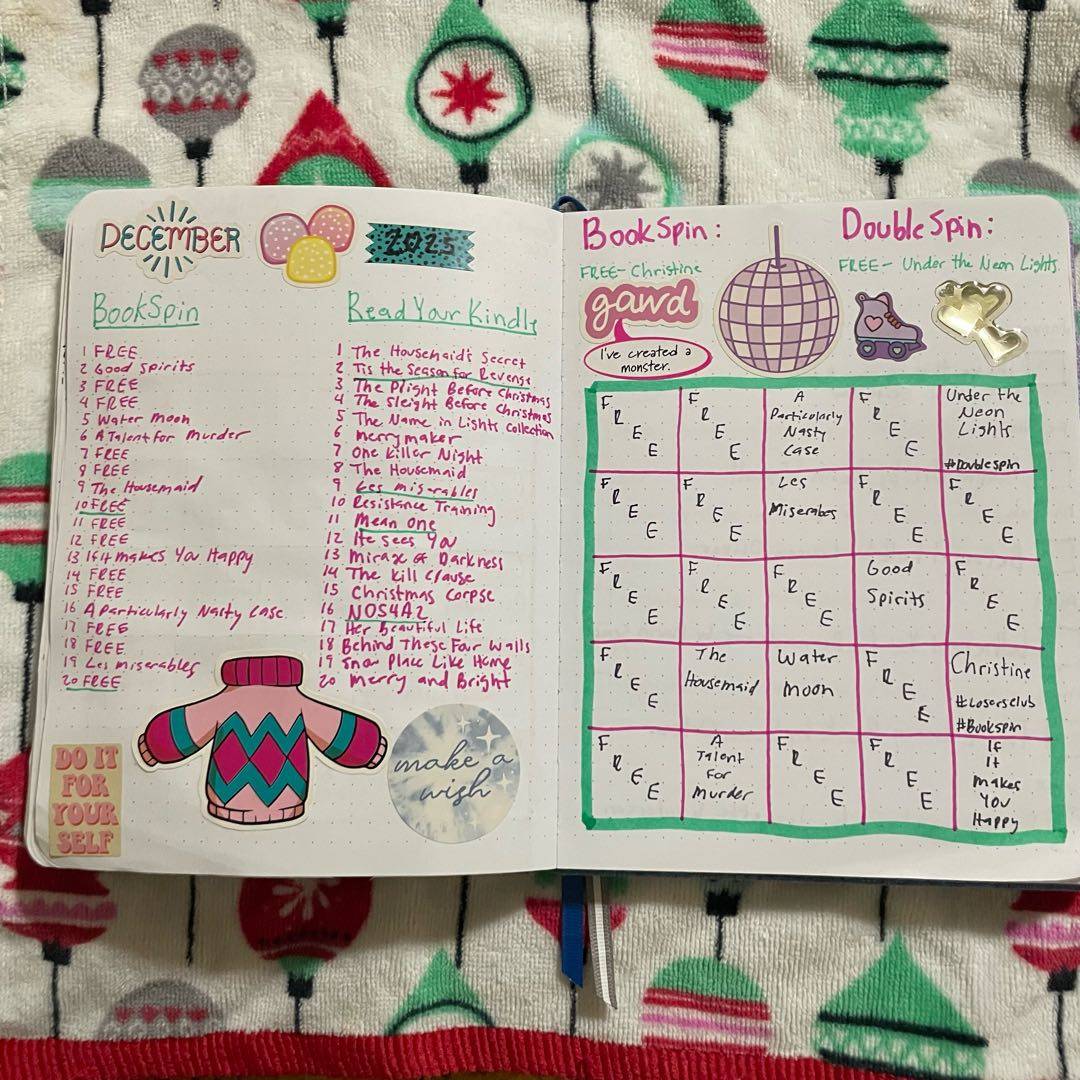 DECEMBER
2025
BookSpin
1 FREE
2 Good Spirits
3 FREE
4 FREE
5 Water Moon
6 A Talent for Murder
7 FREE
8 FREE
9 The Housemaid
10 FREE
11 FREE
12 FREE
13 If it makes You Happy
14 FREE
15 FREE
16 A Particularly Nasty Case
17 FREE
18 FREE
19 Les miserables
20 FREE
Read Your Kindle
1 The Housemaid's Secret
2 Tis the Season for Revenge
3 The Plight Before Christmas
4 The Sleight Before Christmas
5 The Name in Lights Collection
6 merrymaker
7 One Killer Night
8 The Housemaid
9 Les miserables
10 Resistance Training
11 Mean One
12 He Sees You
13 Mirage of Darkness
14 The Kill Clause
15 Christmas Corpse
16 NOS4A2
17 Her Beautiful Life
18 Behind These Four Walls
19 Snow Place Like Home
20 Merry and Bright
DO IT
FOR
YOUR
SELF
make a
wish
BookSpin:
FREE- Christine
DoubleSpin:
FREE- Under the Neon Lights
gawd
I've created a
monster.
FREE
FREE
A
Particularly
Nasty
Case
FREE
Under the
Neon
Lights
#DoubleSpin
FREE
FREE
Les
Miserabes
FREE
FREE
FREE
FREE
FREE
Good
Spirits
FREE
FREE
The
Housemaid
Water
moon
FREE
Christine
#Losersclub
#Bookspin
FREE
A
Talent
For
Murder
FREE
FREE
If
It
makes
You
Happy